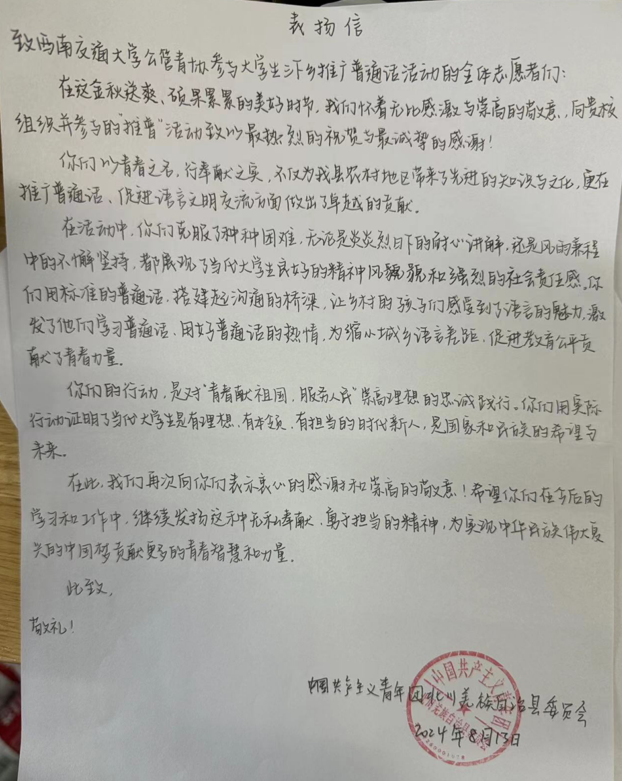 表扬信
致西南交通大学公管青协参与大学生三下乡推广普通话活动的全体志愿者们：
在这金秋送爽、硕果累累的美好时节，我们怀着无比感激与崇高的敬意，向贵校
组织并参与的"推普"活动致以最热烈的祝贺与最诚挚的感谢！
你们以青春之名，行奉献之实，不仅为我县农村地区带来了先进的知识与文化，更在
推广普通话、促进语言文明交流方面做出了卓越的贡献。
在活动中，你们克服了种种困难，无论是炎炎烈日下的耐心讲解，还是风雨兼程
中的不懈坚持，都展现了当代大学生良好的精神风貌和强烈的社会责任感。你
们用标准的普通话，搭建起沟通的桥梁，让乡村的孩子们感受到了语言的魅力，激
发了他们学习普通话、用好普通话的热情，为缩小城乡语言差距，促进教育公平贡
献了青春力量。
你们的行动，是对"青春献祖国，服务人民"崇高理想的忠诚践行。你们用实际
行动证明了当代大学生是有理想、有本领、有担当的时代新人，是国家和民族的希望与
未来。
在此，我们再次向你们表示衷心的感谢和崇高的敬意！希望你们在今后的
学习和工作中，继续发扬这种无私奉献、勇于担当的精神，为实现中华民族伟大复
兴的中国梦贡献更多的青春智慧和力量。
此致，
敬礼！
中国共产主义青年团北川羌族自治县委员会
2024年8月13日